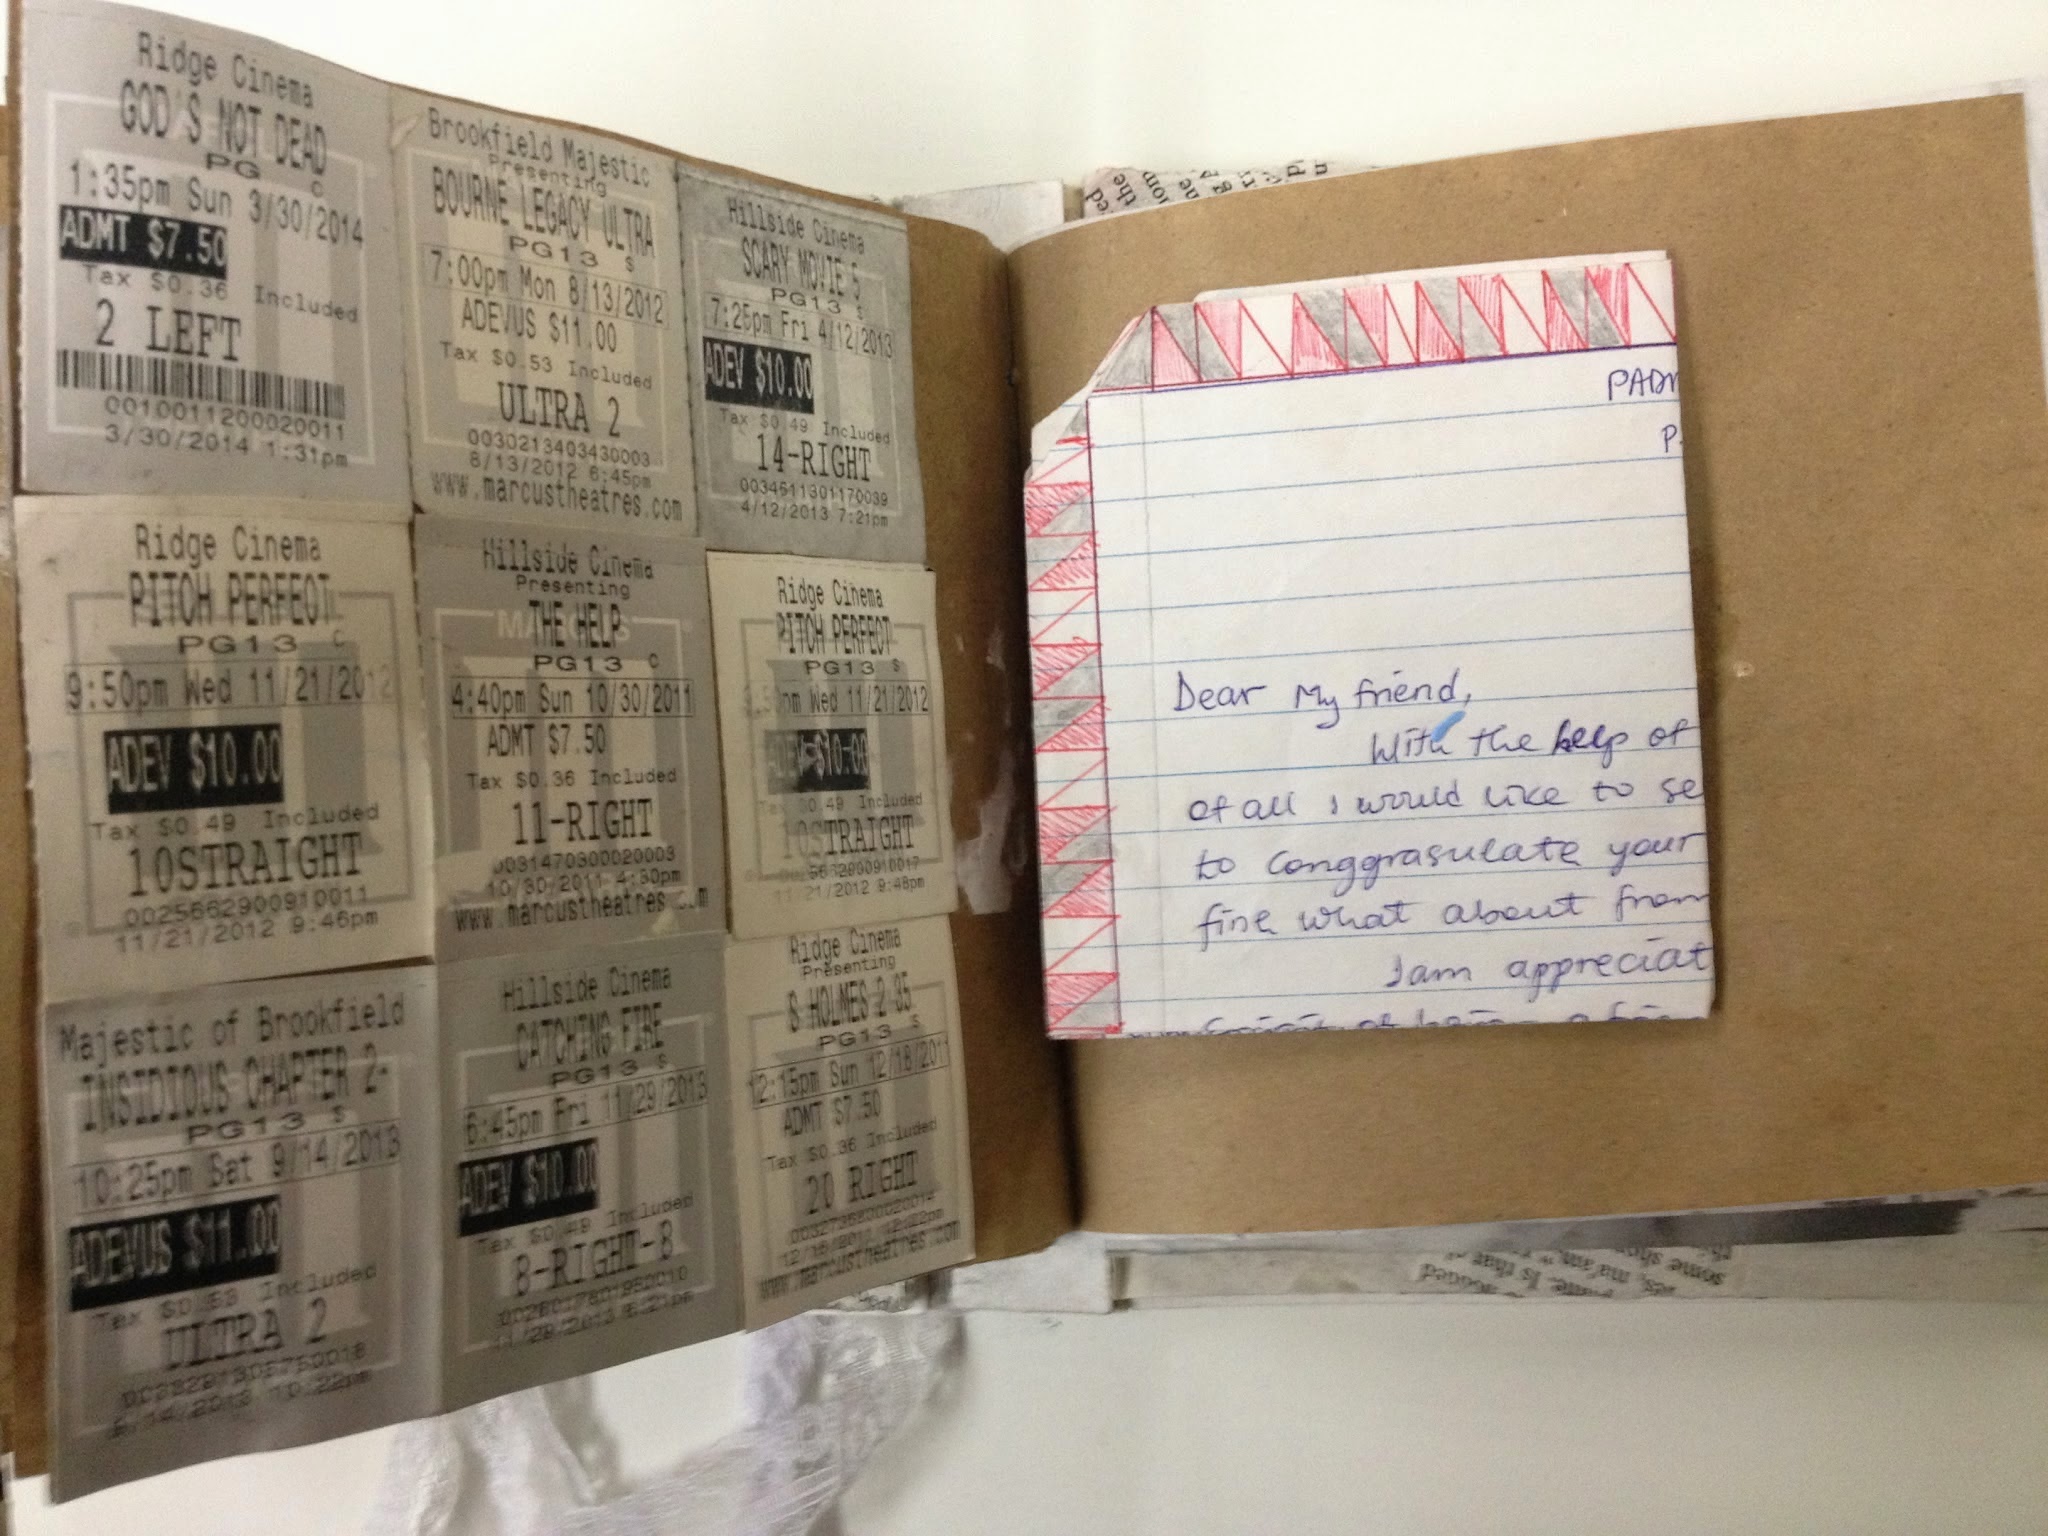 Ridge Cinema
GOD'S NOT DEAD
PG C
1:35pm Sun 3/30/2014
ADMT $7.50
Tax $0.36 Included
2 LEFT
0010011200020011
3/30/2014 1:31pm
Brookfield Majestic
Presenting
BOURNE LEGACY ULTRA
PG13 S
7:00pm Mon 8/13/2012
ADEVUS $11.00
Tax $0.53 Included
ULTRA 2
0030213403430003
8/13/2012 6:45pm
www.marcustheatres.com
Hillside Cinema
SCARY MOVIE 5
PG13 S
7:25pm Fri 4/12/2013
ADEV $10.00
Tax $0.49 Included
14-RIGHT
4/12/2013 7:21pm
Ridge Cinema
PITCH PERFECT
PG13 C
9:50pm Wed 11/21/2012
ADEV $10.00
Tax $0.49 Included
10STRAIGHT
0025662900910011
11/21/2012 9:46pm
Hillside Cinema
Presenting
THE HELP
PG13 C
4:40pm Sun 10/30/2011
ADMT $7.50
Tax $0.36 Included
11-RIGHT
0031470300020003
10/30/2011 4:30pm
www.marcustheatres.com
Ridge Cinema
PITCH PERFECT
PG13 S
Wed 11/21/2012
ADEV $10.00
Tax $0.49 Included
10STRAIGHT
11/21/2012 9:46pm
Majestic of Brookfield
INSIDIOUS CHAPTER 2-
PG13 S
10:25pm Sat 9/14/2013
ADEVUS $11.00
Tax $0.53 Included
ULTRA 2
9/14/2013 10:22pm
Hillside Cinema
CATCHING FIRE
PG13 S
6:45pm Fri 11/29/2013
ADEV $10.00
Tax $0.49 Included
8-RIGHT-8
11/29/2013 6:21pm
Ridge Cinema
Presenting
S HOLMES 2 35
PG13 S
12:15pm Sun 12/18/2011
ADMT $7.50
Tax $0.36 Included
20 RIGHT
www.marcustheatres.com
PADM
P.
Dear My friend,
With the help of
of all I would like to se
to conggrasulate your
fine what about from
I am appreciat